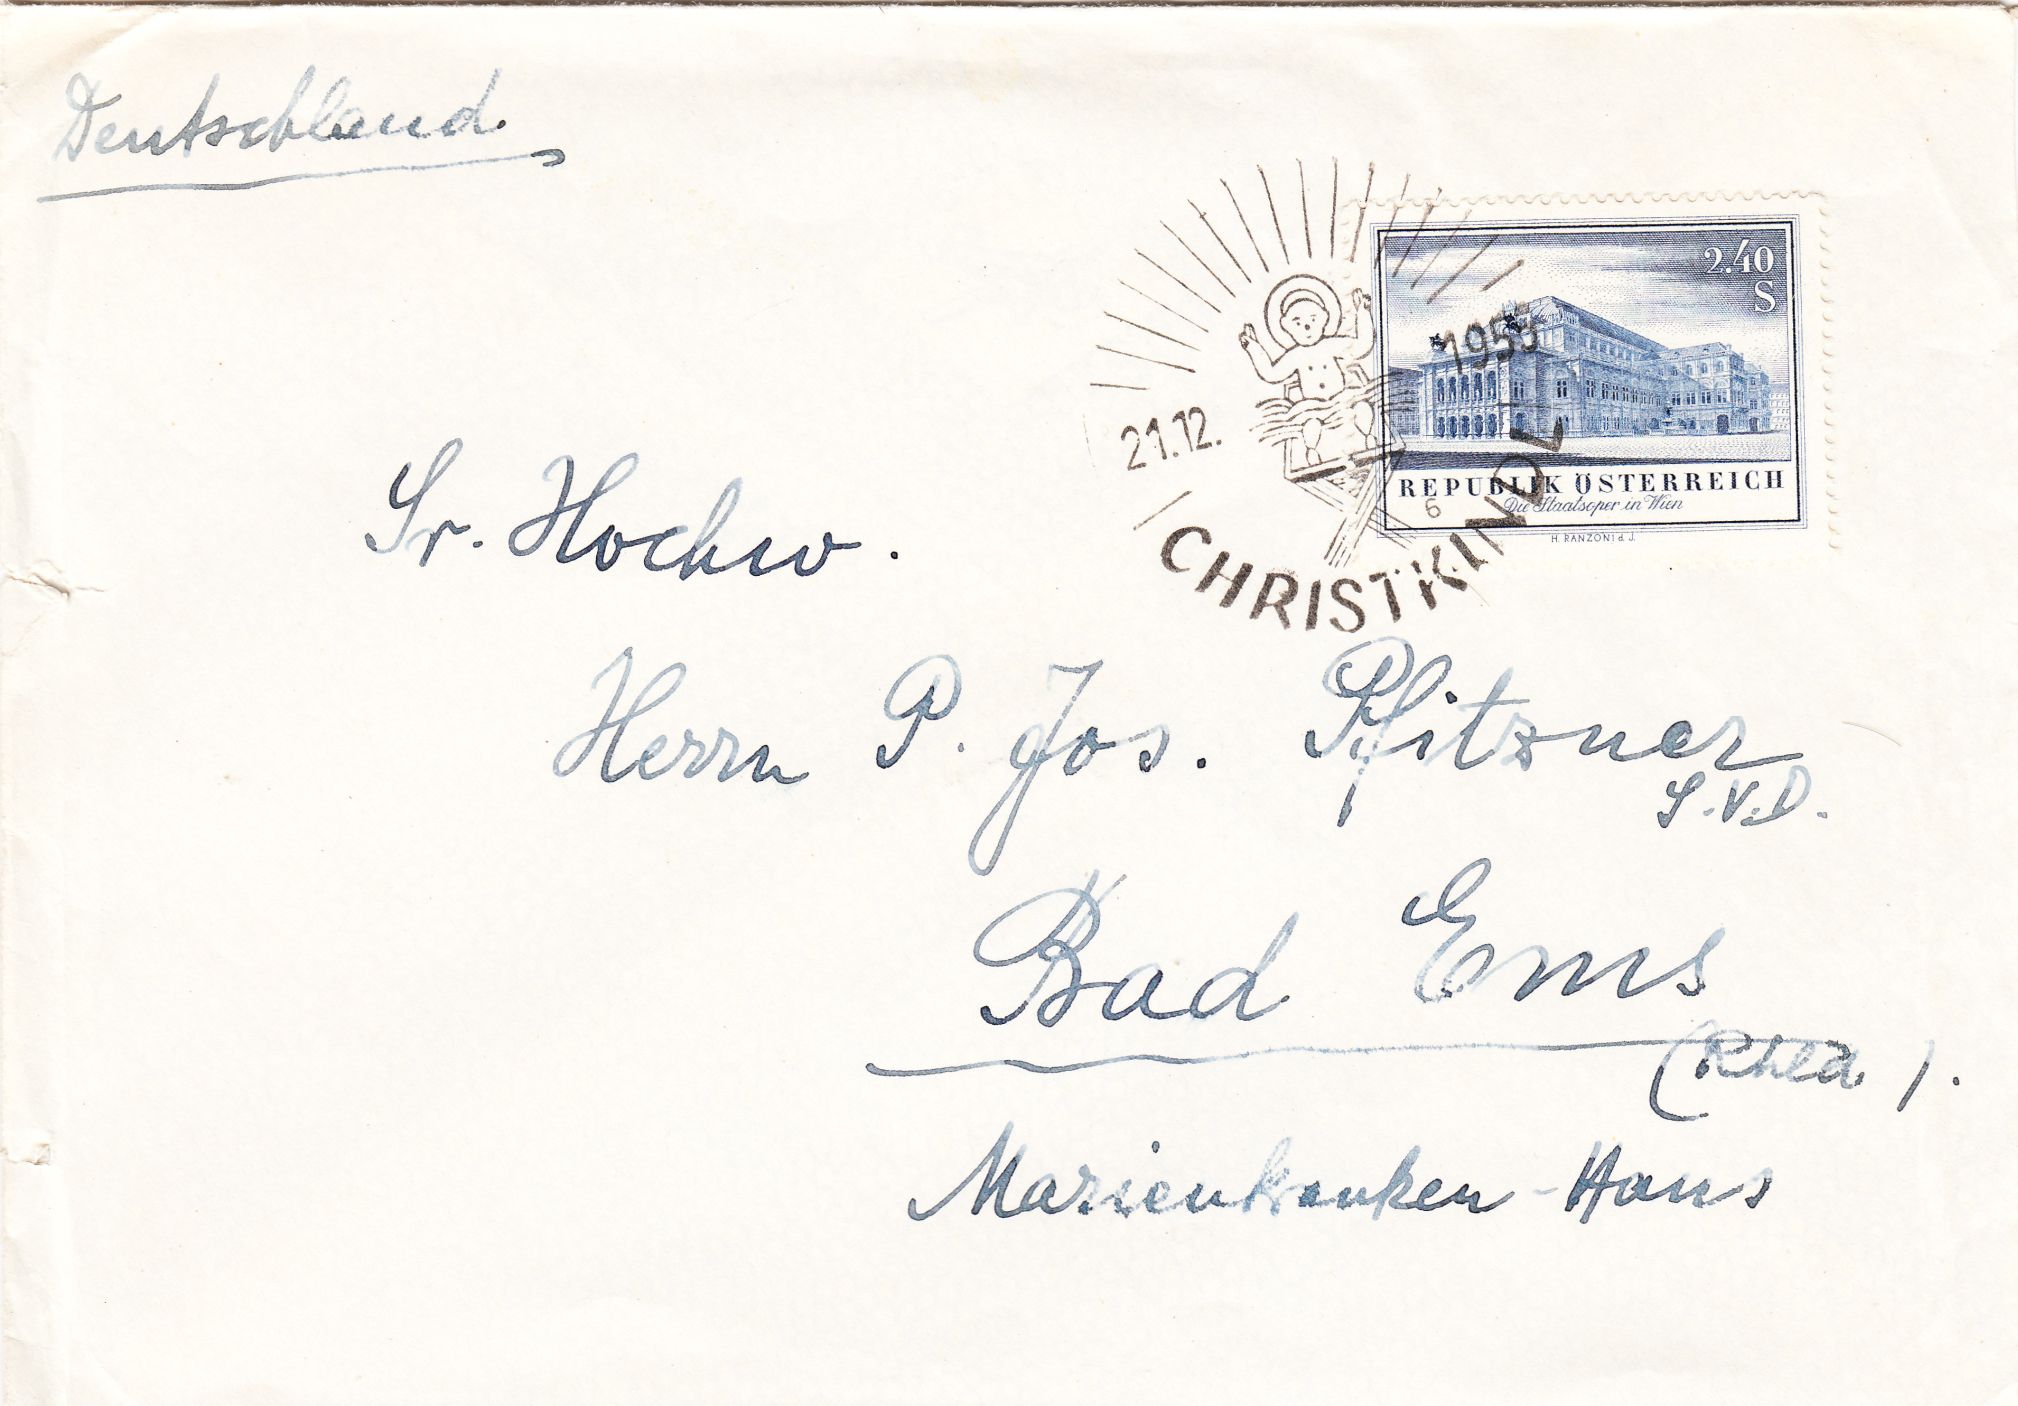 Deutschland
2.40
S
1955
21.12.
REPUBLIK ÖSTERREICH
Die Staatsoper in Wien
6
H. RANZONI d. J.
CHRISTKINDL
Sr. Hochw.
Herrn P. Jos. Pfitzner
S.V.D.
Bad Ems
(Rhld.).
Marienkranken-Haus